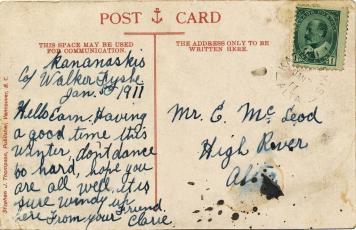 POST CARD
THIS SPACE MAY BE USED FOR COMMUNICATION.
THE ADDRESS ONLY TO BE WRITTEN HERE.
Kananaskis
c/o Walker
Jan. 1911
Hello Earn. Having
a good time this
winter, don't dance
so hard, hope you
are all well, it is
sure windy up
here From your Friend
Clare
Mr. E. McLeod
High River
Alta
Stephen J. Thompson, Publisher, Vancouver, B. C.